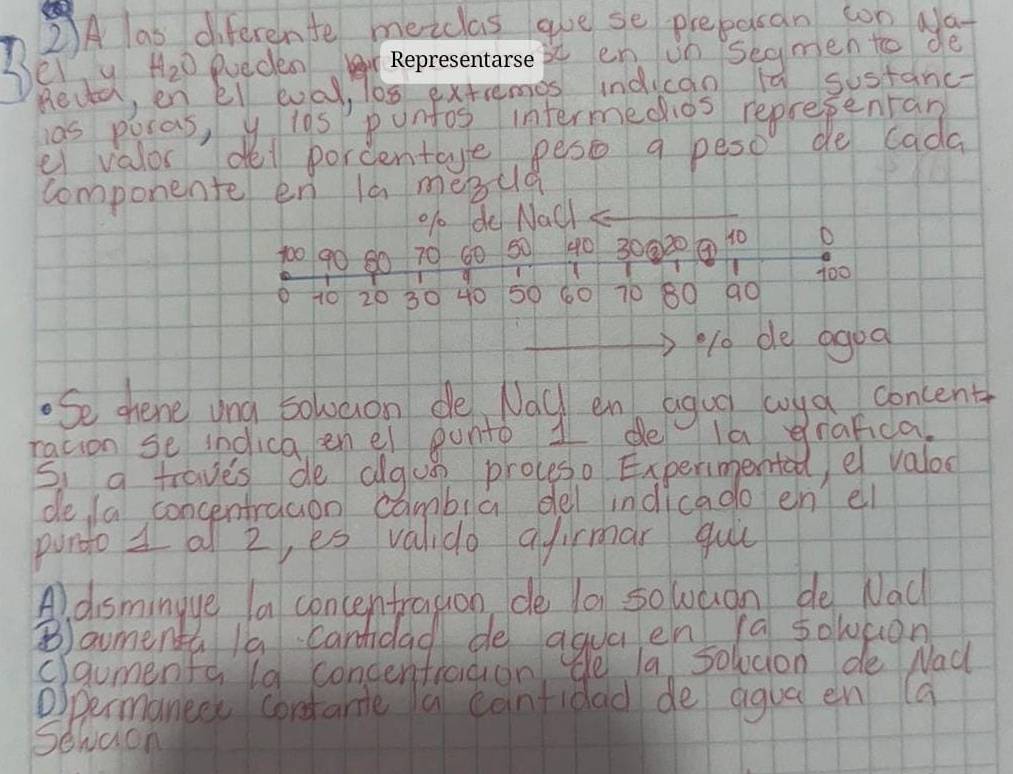 2) A las diferente mezclas que se preparan con Na-
Cl y H₂O pueden Representarse en un segmento de
Recta, en el cual, los extremos indican la sustanc-
ias puras, y los puntos intermedios representan
el valor del porcentaje peso a peso de cada
componente en la mezcla
% de NaCl ←
100 90 80 70 60 50 40 30 ② 20 ① 10 0
0 10 20 30 40 50 60 70 80 90 100
→ % de agua
• Se tiene una solucion de NaCl en agua cuya concent-
racion se indica en el punto 1 de la grafica.
Si a través de algun proceso Experimental, el valor
de la concentracion cambia del indicado en el
punto 1 al 2, es valido afirmar que
A) disminuye la concentracion de la solucion de NaCl
B) aumenta la cantidad de agua en la solucion
C) aumenta la concentracion de la solucion de NaCl
D) permanece constante la cantidad de agua en la
Solucion